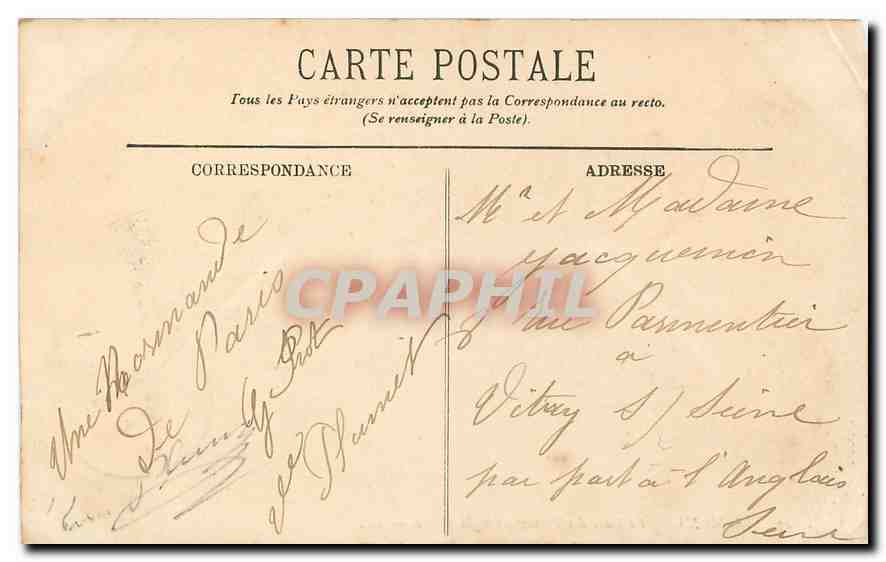 CARTE POSTALE
Tous les Pays étrangers n'acceptent pas la Correspondance au recto.
(Se renseigner à la Poste).
CORRESPONDANCE
Une Normande
De Paris
Prot
Plumet
ADRESSE
Mr et Madame
Jacquemin
Rue Parmentier
à
Vitry s/ Seine
par port à l'Anglais
Seine
CPAPHIL